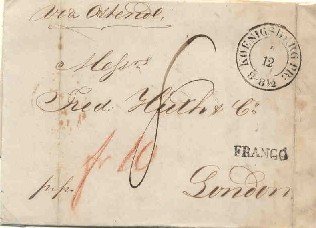 via Ostende.
KOENIGSBERG PR.
12
Messrs
Fred. Huth & Co.
fr 10
FRANCO
p.p.
London.